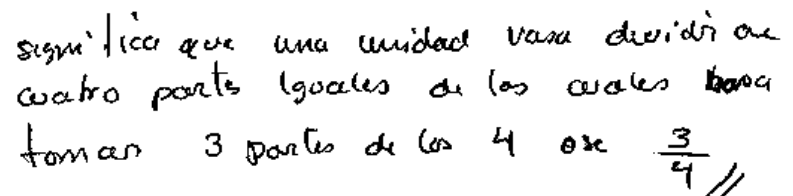 significa que una unidad vasa dividir en
cuatro partes Iguales de las cuales basa
tomar 3 partes de las 4 ose 3/4 //